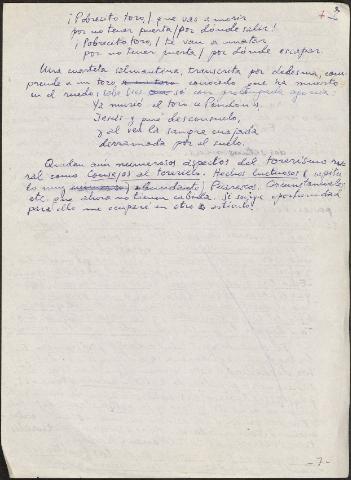 ¡Pobrecito toro, / que vas a morir
por no tener puerta / por donde salir!
¡Pobrecito toro, / te van a matar
por no tener puerta / por dónde escapar
Una cuarteta salmantina, transcrita por Ledesma, com
prende a un toro conocido que ha muerto
en el ruedo, con prolongada agonía:
Ya murió el toro
Jesús y qué desconsuelo,
y al ver la sangre cuajada
derramada por el suelo.
Quedan aún numerosos aspectos del torerismo ru-
ral como Consejos al torerillo. Hechos luctuosos (capítu
lo muy abundante) Parejas. Circunstanciales,
etc. que ahora no tienen cabida. Si surge oportunidad
para ello me ocuparé en otro artículo.
-7-